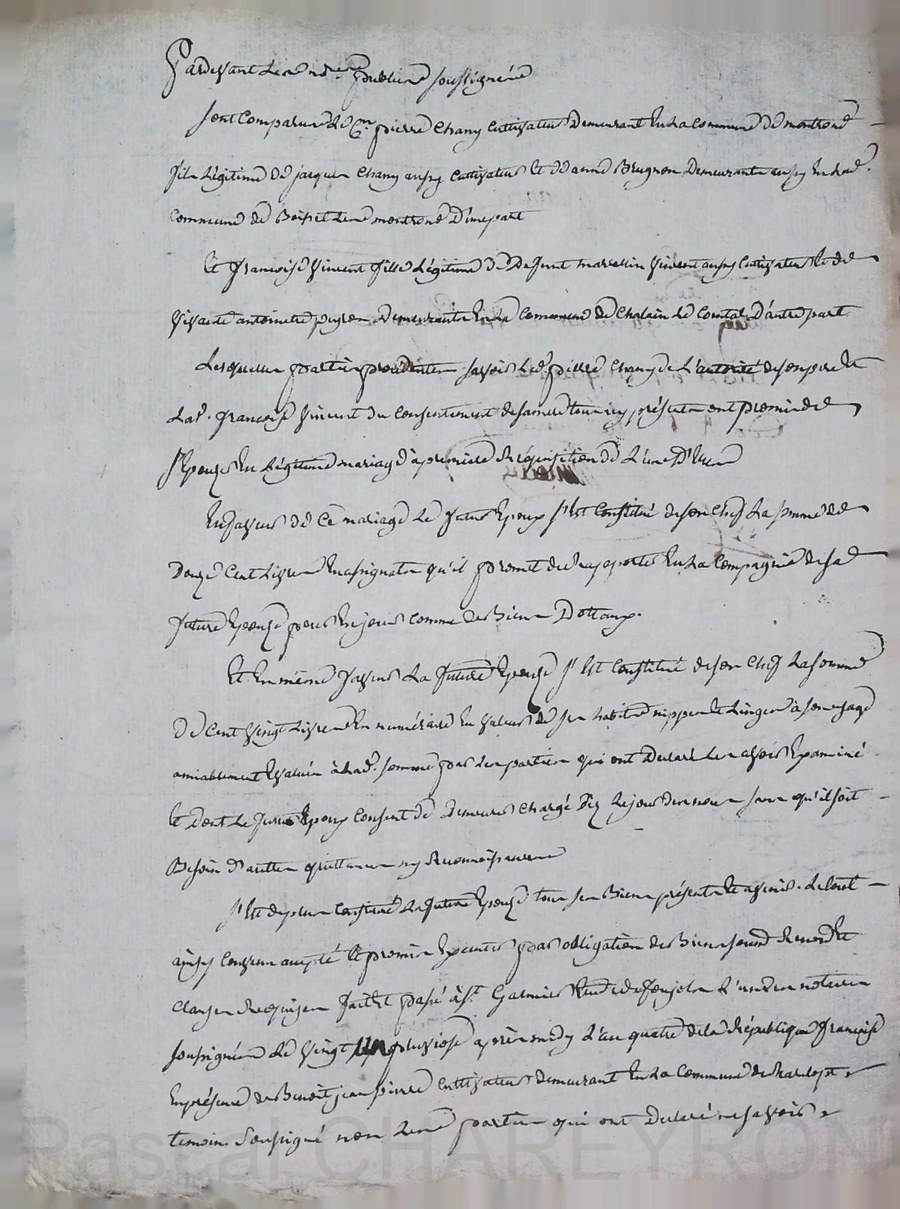 Pardevant Les nres publics soussignés
sont Comparus Le Cen pierre Chany Cultivateur Demeurant En La Commune de montrond
fils Légitime de jacques Chany aussy Cultivateur Et de anne Brugnon Demeurants aussy En lad.
commune de Boisset Les montrond D'une part
Et françoise Vincent fille Légitime de Defunt marcellin Vincent aussy Cultivateur Et de
Vivante antoinette demeurante En La Commune de Chalain Le Comtal D'autre part
Lesquelles parties procedantes savoir Led. pierre Chany de L'autorité de son pere Et
Lad. françoise Vincent du Consentement de sa mere tous icy présents ont promis de
s'Epouser En Légitime mariage à première Réquisition de L'une D'Elles
En faveur de Ce mariage Le futur Epoux s'Est Constitué de son Chef La somme de
Douze Cent Livres En assignats qu'il promet de rapporter En La Compagnie de sad.
future Epouse pour En jouir comme de Biens Dottaux.
Et En même faveur La future Epouse s'Est Constitué de son Chef La somme
de Cent Vingt Livres En numéraire En Valeur de ses habits nippes et Linges à son usage
amiablement Evalués à lad. somme par Les parties qui ont Declaré Les avoir Examiné
Et Dont Le futur Epoux Consent de Demeurer Chargé Dez Le jour des noces sans qu'il soit
Besoin D'autres quittances ny Reconnoissances
s'Est de plus Constitué La future Epouse tous ses Biens présents Et avenir. Le tout
ainsy Convenu accepté Et promis Executer par obligation de Biens soumis Renoncé Et
Clauses Requises fait Et passé à St. Galmier L'un des notaires
soussignés Le Vingt pluviose après midy L'an quatre de la République française
En présence de Benoit jean pierre Cultivateur demeurant En La Commune de
temoin Soussigné non Les parties qui ont Declaré ne savoir
Pascal CHAREYRON